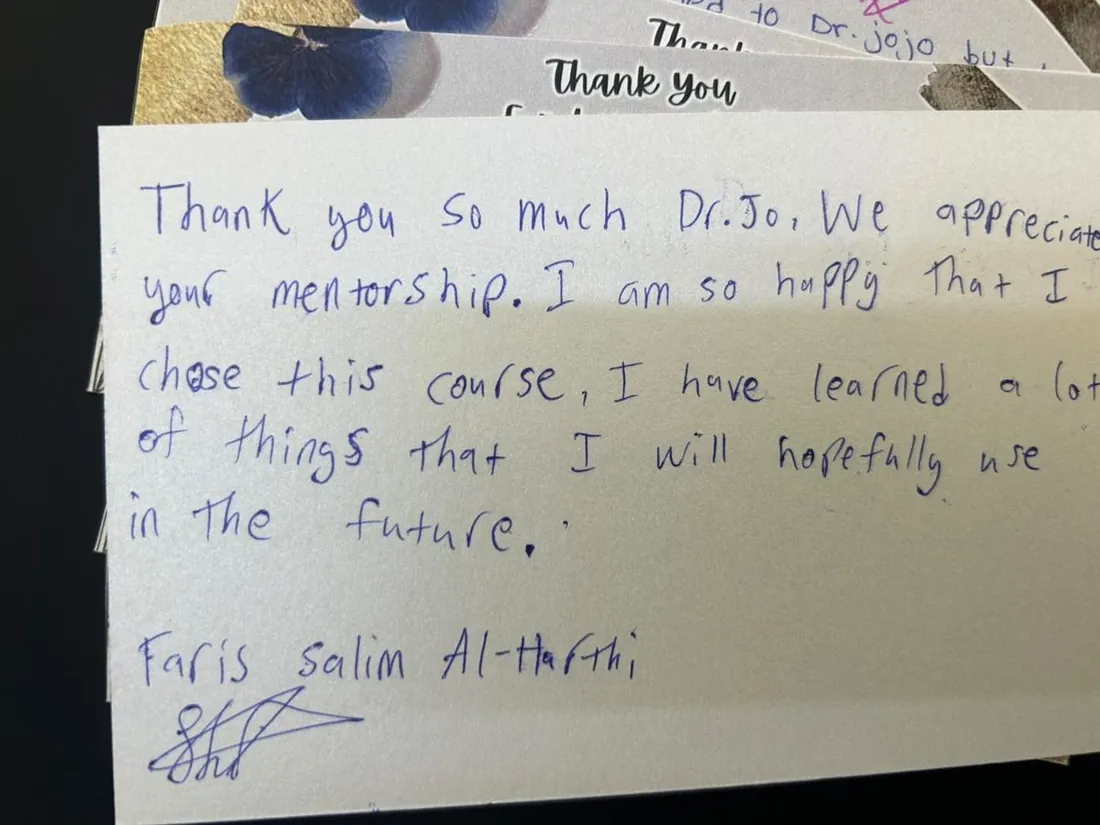 to Dr. jojo but
Thank
Thank you
Thank you so much Dr. Jo, We appreciate
your mentorship. I am so happy that I
chose this course, I have learned a lot
of things that I will hopefully use
in the future.
Faris salim Al-Harthi